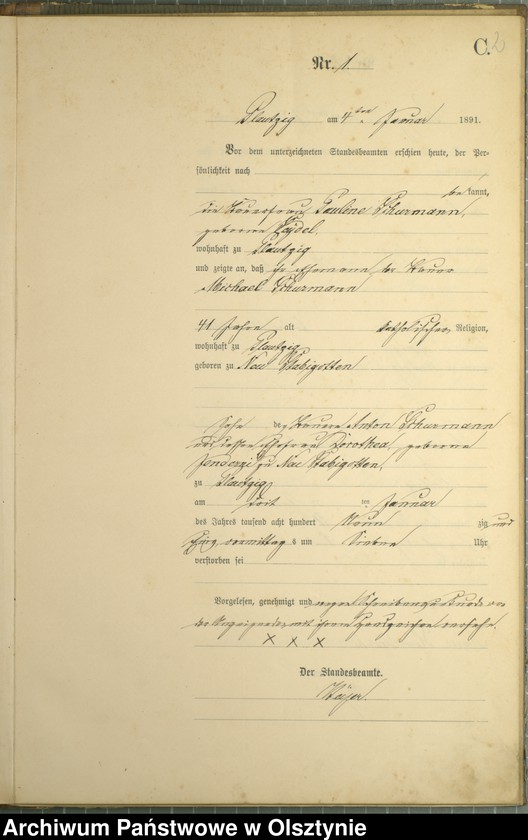 C. 2
Nr. 1.
Plautzig am 4ten Januar 1891.
Vor dem unterzeichneten Standesbeamten erschien heute, der Per-
sönlichkeit nach
bekannt,
die Bauerfrau Pauline Schurmann,
geborene
wohnhaft zu Plautzig
und zeigte an, daß ihr Ehemann, der Bauer
Michael Schurmann
41 Jahre alt katholischer Religion,
wohnhaft zu Plautzig
geboren zu Neu Stabigotten
Sohn des Bauer Anton Schurmann
und dessen Ehefrau Dorothea, geborene
zu Neu Stabigotten,
zu Plautzig
am Januar
des Jahres tausend acht hundert Neun zig und
vormittag s um Sieben Uhr
verstorben sei
Vorgelesen, genehmigt und wegen Schreibensunkunde von
der mit ihrem Handzeichen versehen.
× × ×
Der Standesbeamte.
Archiwum Państwowe w Olsztynie